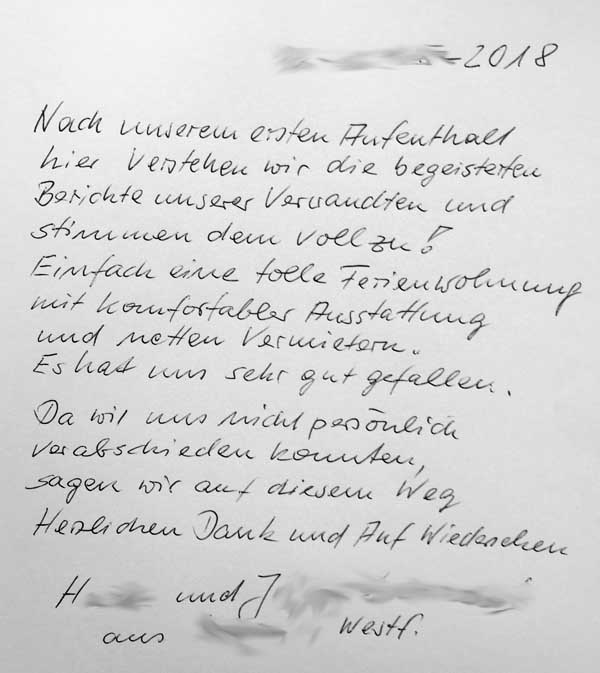 -2018
Nach unserem ersten Aufenthalt
hier verstehen wir die begeisterten
Berichte unserer Verwandten und
stimmen dem voll zu!
Einfach eine tolle Ferienwohnung
mit komfortabler Ausstattung
und netten Vermietern.
Es hat uns sehr gut gefallen.
Da wir uns nicht persönlich
verabschieden konnten,
sagen wir auf diesem Weg
Herzlichen Dank und Auf Wiedersehen
H und J
aus Westf.